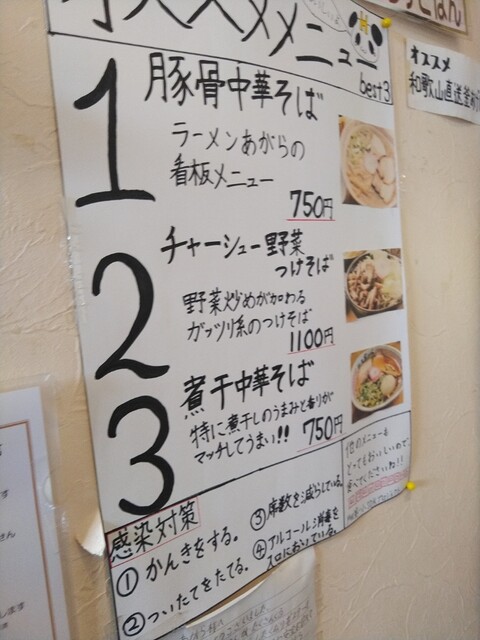 オススメメニュー
best3
1
豚骨中華そば
ラーメンあがらの
看板メニュー
750円
2
チャーシュー野菜
つけそば
野菜炒めが加わる
ガッツリ系のつけそば
1100円
3
煮干中華そば
特に煮干しのうまみと香りが
マッチしてうまい!!
750円
他のメニューも
とってもおいしいので、
食べてくださいね!!
感染対策
①かんきをする。
②ついたてをたてる。
③席数を減らしている。
④アルコール消毒を
入口においている。
オススメ
和歌山直送釜め
ごはん